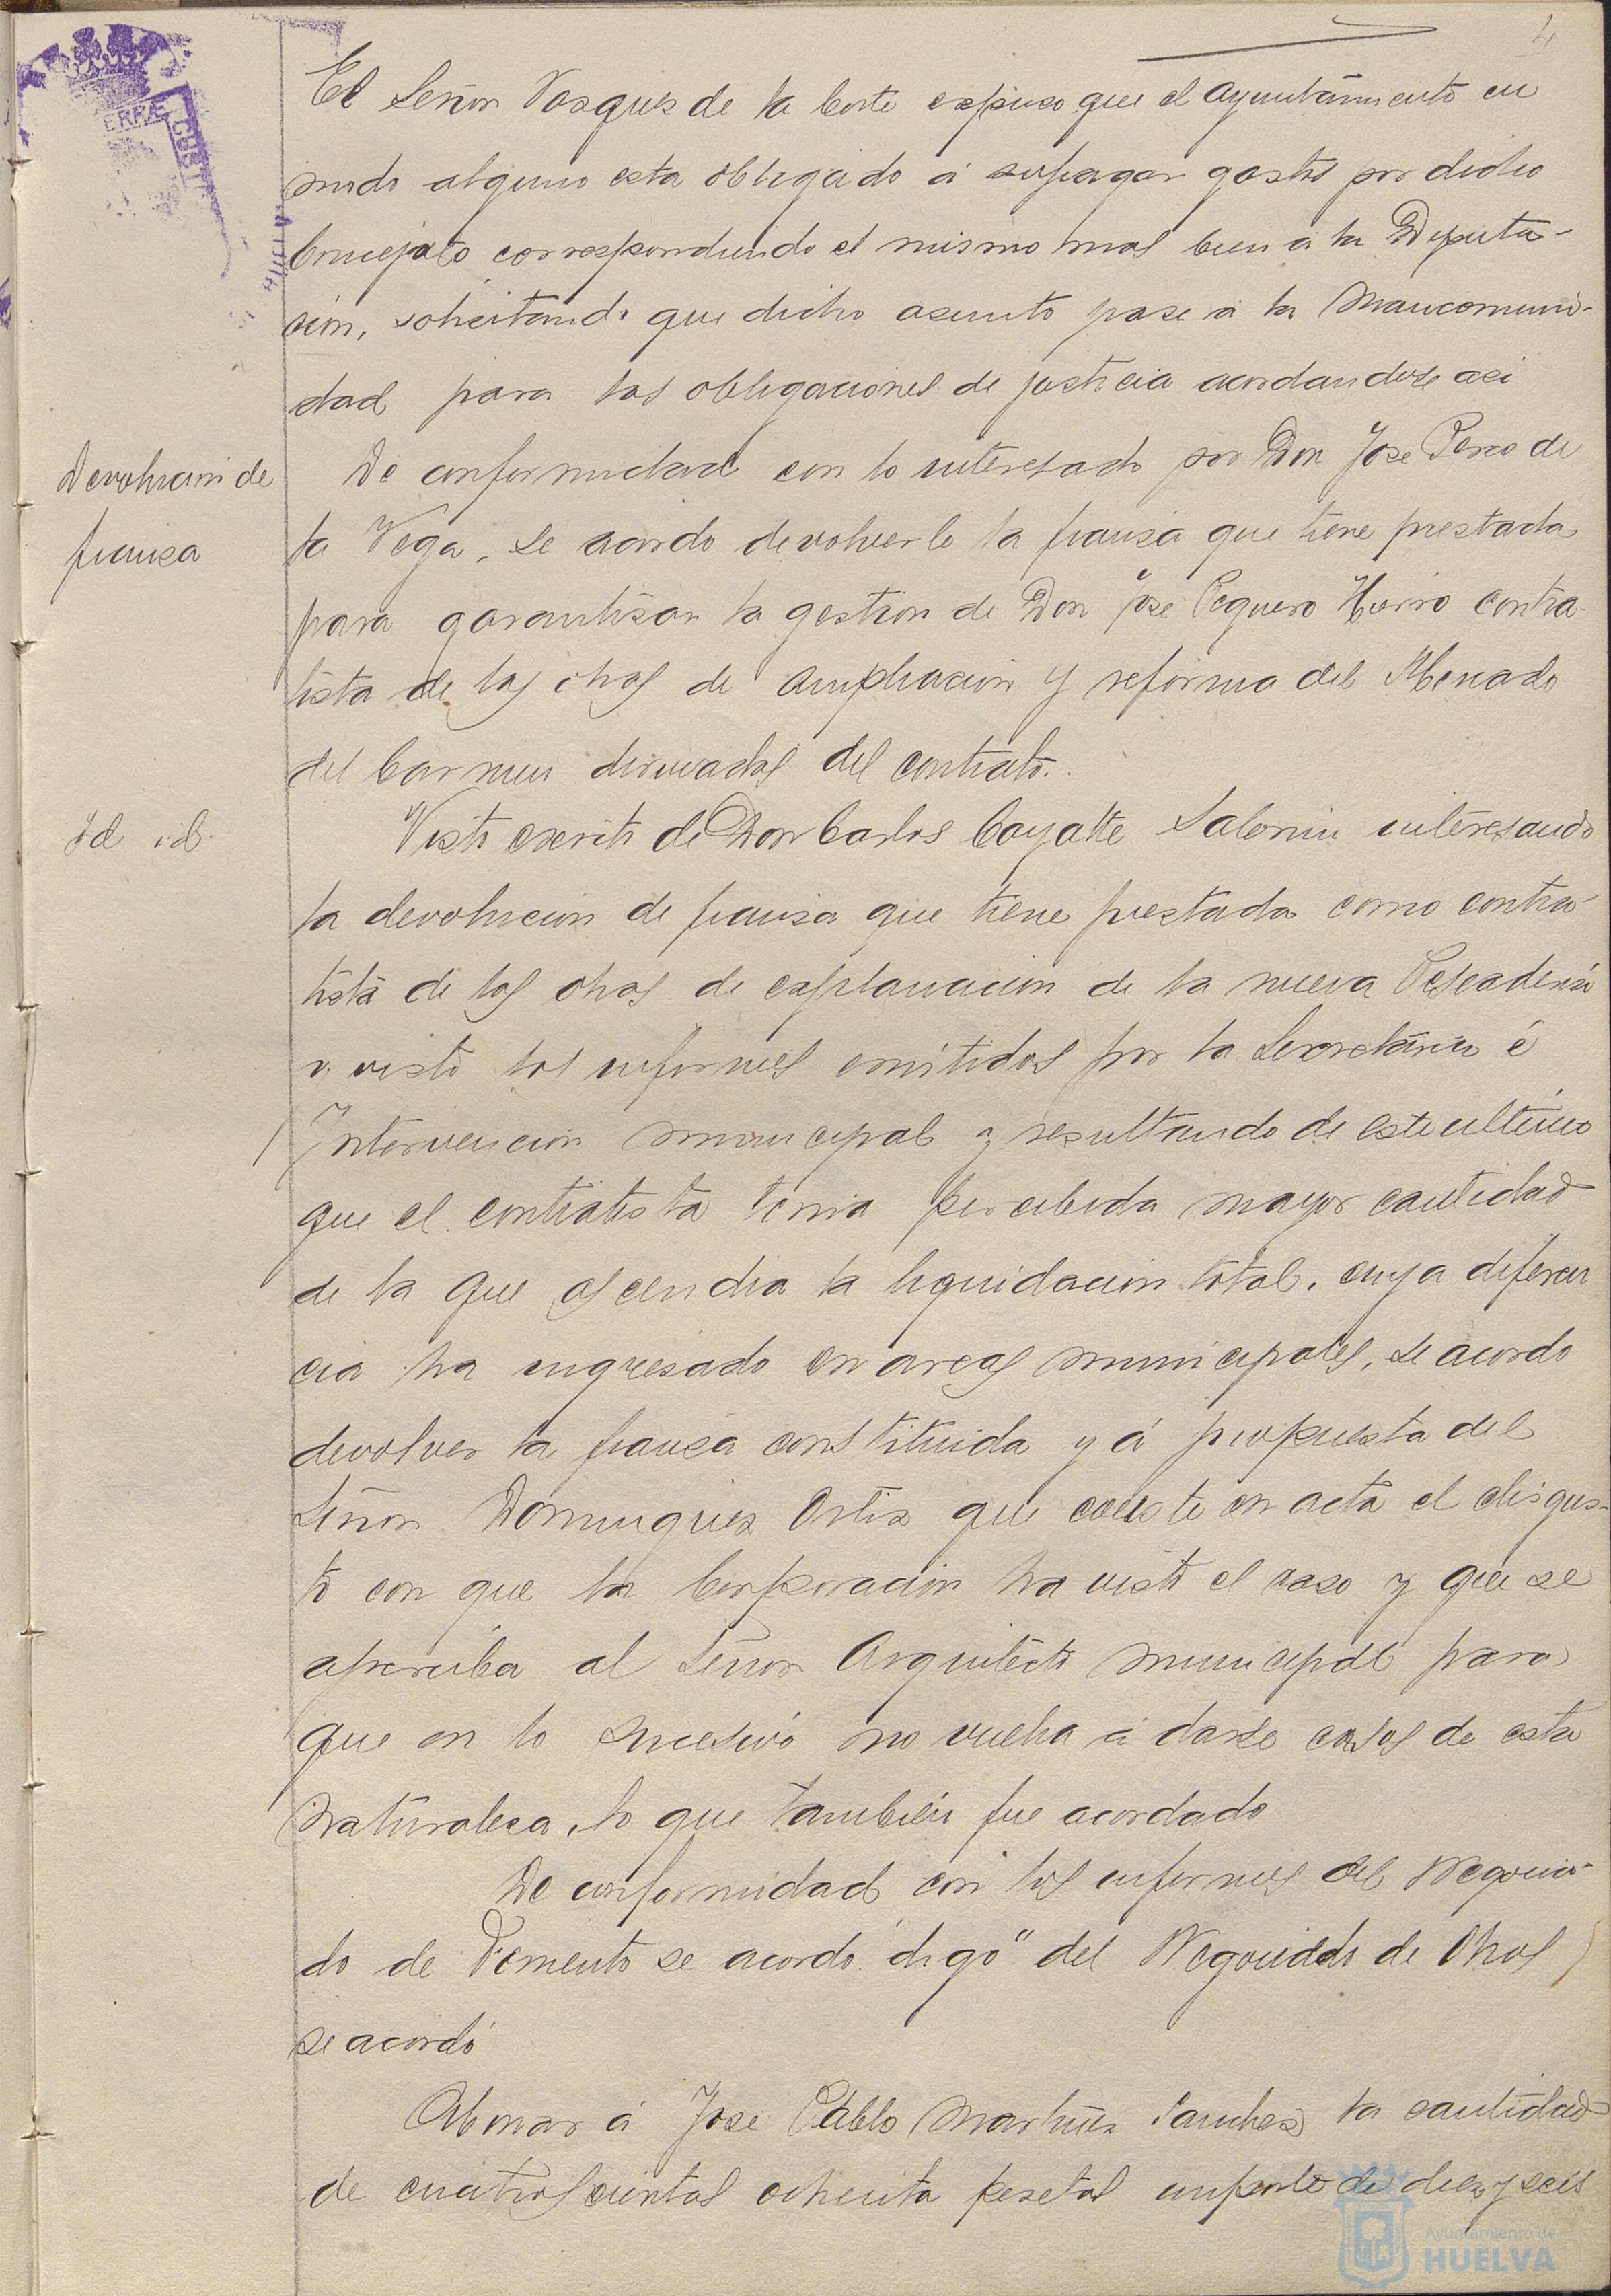 4
El Señor Vasques de la Corte espuso que el ayuntamiento en
modo alguno esta obligado á sufragar gastos por dicho
Concejato correspondiendo el mismo mas bien a la Diputa-
ción, solicitando que dicho asunto pase a la Mancomuni-
dad para las obligaciones de justicia acordandose asi
Devolucion de
fianza
De conformidad con lo interesado por Don Jose Perez de
la Vega, se acordo devolverle la fianza que tiene prestada
para garantizar la gestion de Don Jose Peguero Hierro contra-
tista de las obras de ampliacion y reforma del Mercado
del Carmen derivadas del contrato.
Id id.
Visto escrito de Don Carlos Coyatte Salomin interesando
la devolucion de fianza que tiene prestada como contra-
tista de las obras de explanacion de la nueva Pescaderia
y visto los informes emitidos por la Secretaria é
Intervencion municipal y resultando de este ultimo
que el contratista tenia percibida mayor cantidad
de la que ascendia la liquidacion total, cuya diferen
cia ha ingresado en arcas municipales, se acordo
devolver la fianza constituida y á propuesta del
Señor Dominguez Ortiz que conste en acta el disgus-
to con que la Corporacion ha visto el caso y que se
aperciba al Señor Arquitecto municipal para
que en lo sucesivo no vuelva a darse casos de esta
naturaleza, lo que tambien fue acordado
De conformidad con los informes del Negocia-
do de Fomento se acordó "digo" del Negociado de Obras
se acordó
Abonar á Jose Pablo Martinez Sanchez la cantidad
de cuatroscientas ochenta pesetas importe de diez y seis
Ayuntamiento de
HUELVA